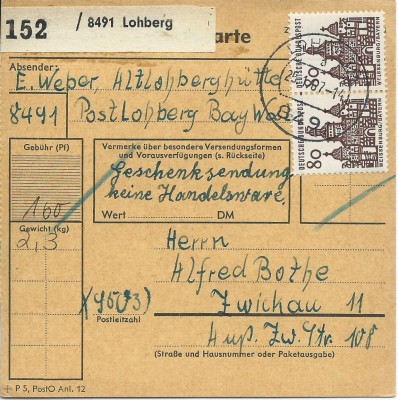 152 / 8491 Lohberg
arte
Absender:
E. Weber, Altlohberghütte
8491 Postlohberg Bay Wald
DEUTSCHE BUNDESPOST
80
WEISSENBURG/BAYERN
DEUTSCHE BUNDESPOST
80
WEISSENBURG/BAYERN
Gebühr (Pf)
Vermerke über besondere Versendungsformen
und Vorausverfügungen (s. Rückseite)
Geschenksendung
keine Handelsware.
Wert DM
160
Gewicht (kg)
2,3
Herrn
Alfred Bothe
(9503)
Zwickau 11
Postleitzahl
Auß. Zw. Str. 108
(Straße und Hausnummer oder Paketausgabe)
+ P 5, PostO Anl. 12